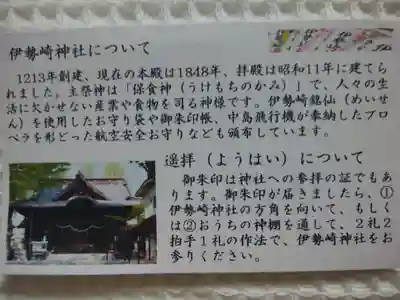 伊勢崎神社について
1213年創建、現在の本殿は1848年、拝殿は昭和11年に建てら
れました。主祭神は「保食神（うけもちのかみ）」で、人々の生
活に欠かせない産業や食物を司る神様です。伊勢崎銘仙（めいせ
ん）を使用したお守り袋や御朱印帳、中島飛行機が奉納したプロ
ペラを形どった航空安全お守りなども頒布しています。
遥拝（ようはい）について
御朱印は神社への参拝の証でもあ
ります。御朱印が届きましたら、①
伊勢崎神社の方角を向いて、もしく
は②おうちの神棚を通して、２礼２
拍手１礼の作法で、伊勢崎神社をお
参りください。